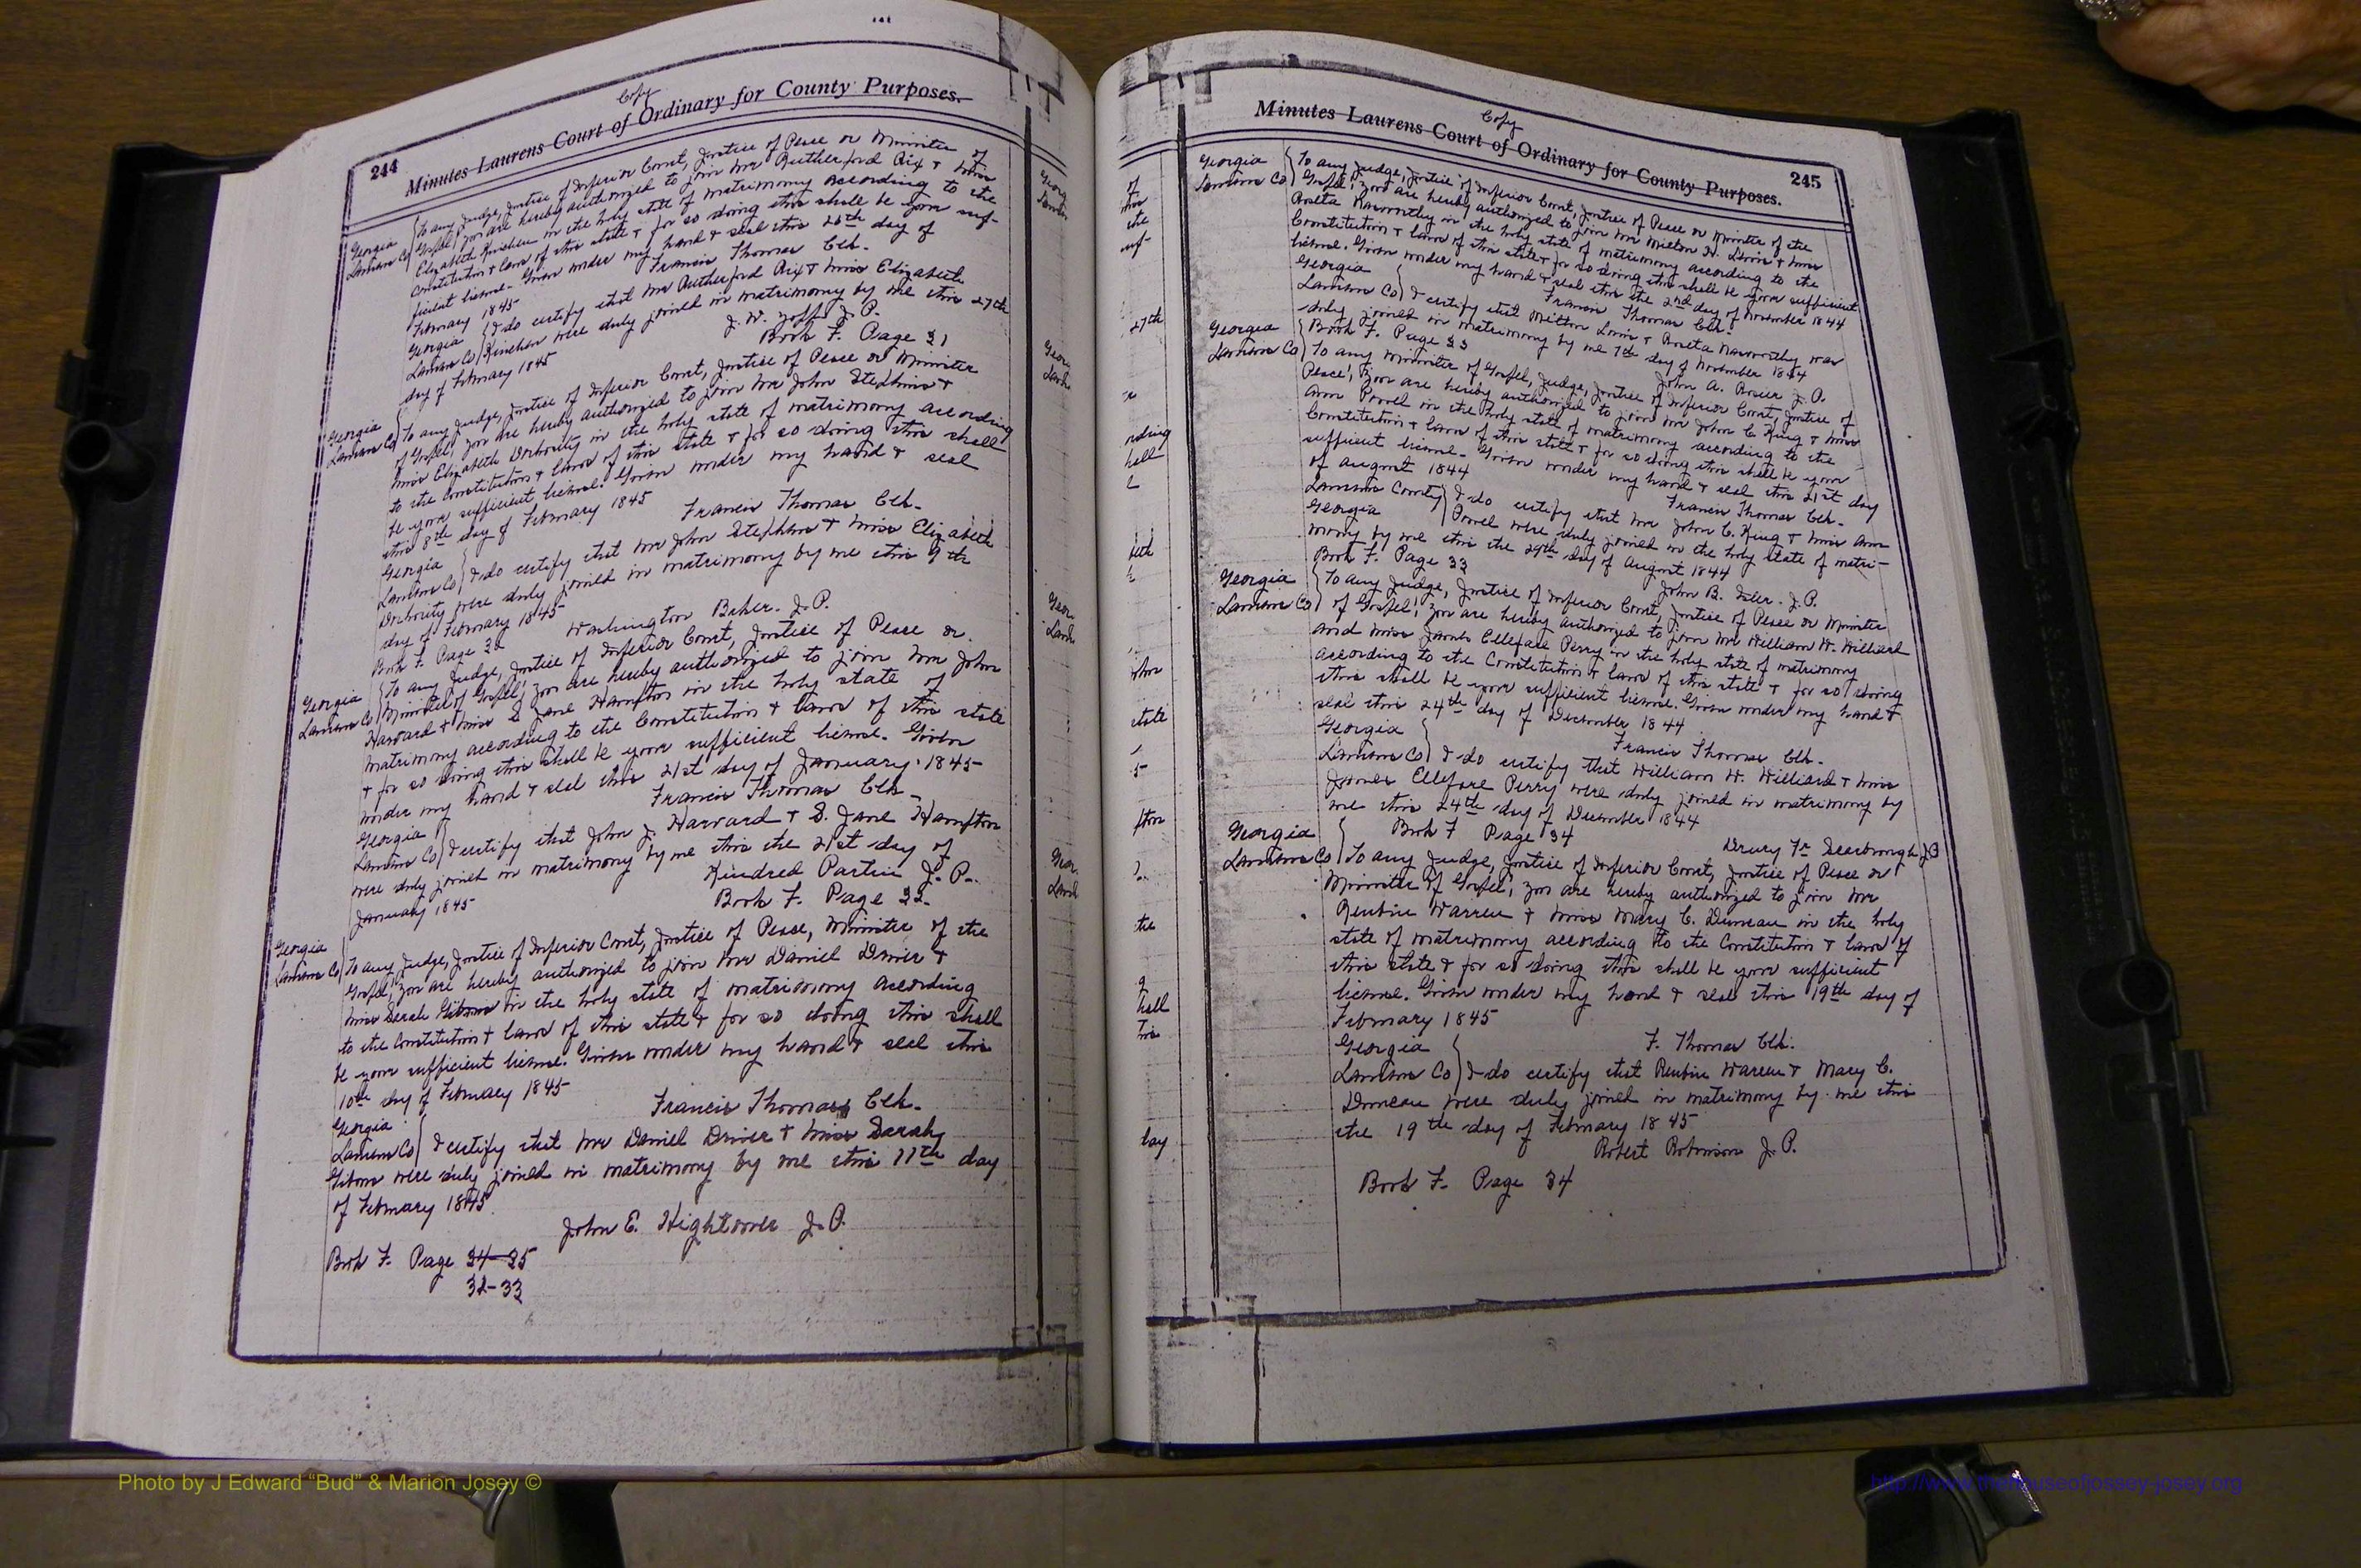 Copy
244 Minutes Laurens Court of Ordinary for County Purposes.
Georgia
Laurens Co
To any Judge, Justice of Inferior Court, Justice of Peace or Minister of
Gospel; you are hereby authorized to join Mr Rutherford Rix & Miss
Elizabeth Kinchen in the holy state of matrimony according to the
Constitution & laws of this state & for so doing this shall be your suf-
ficient license. Given under my hand & seal this 26th day of
February 1845
Francis Thomas Clk.
Georgia
Laurens Co
I do certify that Mr Rutherford Rix & Miss Elizabeth
Kinchen were duly joined in matrimony by me this 27th
day of February 1845
J. W. J. P.
Book F. Page 31
Georgia
Laurens Co
To any Judge, Justice of Inferior Court, Justice of Peace or Minister
of Gospel; you are hereby authorized to join Mr John Stephens &
Miss Elizabeth in the holy state of matrimony according
to the Constitution & laws of this state & for so doing this shall
be your sufficient license. Given under my hand & seal
this 8th day of February 1845
Francis Thomas Clk.
Georgia
Laurens Co
I do certify that Mr John Stephens & Miss Elizabeth
were duly joined in matrimony by me this 9th
day of February 1845
Washington Baker. J. P.
Book F. Page 32
Georgia
Laurens Co
To any Judge, Justice of Inferior Court, Justice of Peace or
Minister of Gospel; you are hereby authorized to join Mr John
Harvard & Miss S Jane Hampton in the holy state of
matrimony according to the Constitution & laws of this state
& for so doing this shall be your sufficient license. Given
under my hand & seal this 21st day of January. 1845
Francis Thomas Clk.
Georgia
Laurens Co
I certify that John J. Harvard & S. Jane Hampton
were duly joined in matrimony by me this the 21st day of
January 1845
Kindred Partin J. P.
Book F. Page 32.
Georgia
Laurens Co
To any Judge, Justice of Inferior Court, Justice of Peace, Minister of the
Gospel, you are hereby authorized to join Mr Daniel Driver &
Miss Sarah Gibson in the holy state of matrimony according
to the Constitution & laws of this state & for so doing this shall
be your sufficient license. Given under my hand & seal this
10th day of February 1845
Francis Thomas Clk.
Georgia
Laurens Co
I certify that Mr Daniel Driver & Miss Sarah
Gibson were duly joined in matrimony by me this 11th day
of February 1845
John E. Hightower J. P.
Book F. Page 34-35
32-33
Copy
Minutes Laurens Court of Ordinary for County Purposes. 245
Georgia
Laurens Co
To any Judge, Justice of Inferior Court, Justice of Peace or Minister of the
Gospel; you are hereby authorized to join Mr Milton H. & Miss
in the holy state of matrimony according to the
Constitution & laws of this state & for so doing this shall be your sufficient
license. Given under my hand & seal this the 2nd day of November 1844
Francis Thomas Clk.
Georgia
Laurens Co
I certify that Milton & was
duly joined in matrimony by me 7th day of November 1844
John A. J. P.
Book F. Page 33
Georgia
Laurens Co
To any Minister of Gospel, Judge, Justice of Inferior Court, Justice of
Peace; you are hereby authorized to join Mr John C. King & Miss
Ann Powel in the holy state of matrimony according to the
Constitution & laws of this state & for so doing this shall be your
sufficient license. Given under my hand & seal this 21st day
of August 1844
Francis Thomas Clk.
Laurens County
Georgia
I do certify that Mr John C. King & Miss Ann
Powel were duly joined in the holy state of matri-
mony by me this the 29th day of August 1844
John B. J. P.
Book F. Page 33
Georgia
Laurens Co
To any Judge, Justice of Inferior Court, Justice of Peace or Minister
of Gospel; you are hereby authorized to join Mr William W. Williard
and Miss Perry in the holy state of matrimony
according to the Constitution & laws of this state & for so doing
this shall be your sufficient license. Given under my hand &
seal this 24th day of December 1844
Francis Thomas Clk.
Georgia
Laurens Co
I do certify that William W. Williard & Miss
Perry were duly joined in matrimony by
me this 24th day of December 1844
Drury Scarborough JP
Book F Page 34
Georgia
Laurens Co
To any Judge, Justice of Inferior Court, Justice of Peace or
Minister of Gospel; you are hereby authorized to join Mr
Reubin Warren & Miss Mary C. Duncan in the holy
state of matrimony according to the Constitution & laws of
this state & for so doing this shall be your sufficient
license. Given under my hand & seal this 19th day of
February 1845
F. Thomas Clk.
Georgia
Laurens Co
I do certify that Reubin Warren & Mary C.
Duncan were duly joined in matrimony by me this
the 19th day of February 1845
Robert Robinson J. P.
Book F. Page 34
Photo by J Edward “Bud” & Marion Josey ©
http://www.thehouseofjossey-josey.org